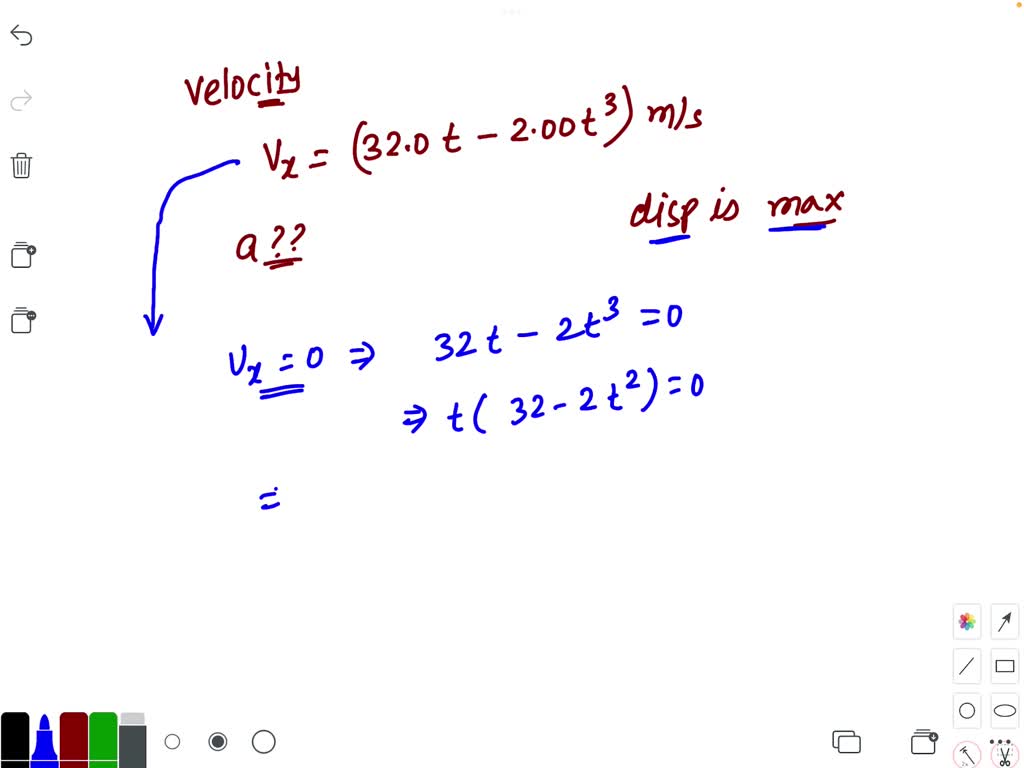 velocity
Vx = (32.0 t - 2.00t³) m/s
a ??
disp is max
Vx = 0 ⇒ 32t - 2t³ = 0
⇒ t( 32 - 2t²) = 0
=